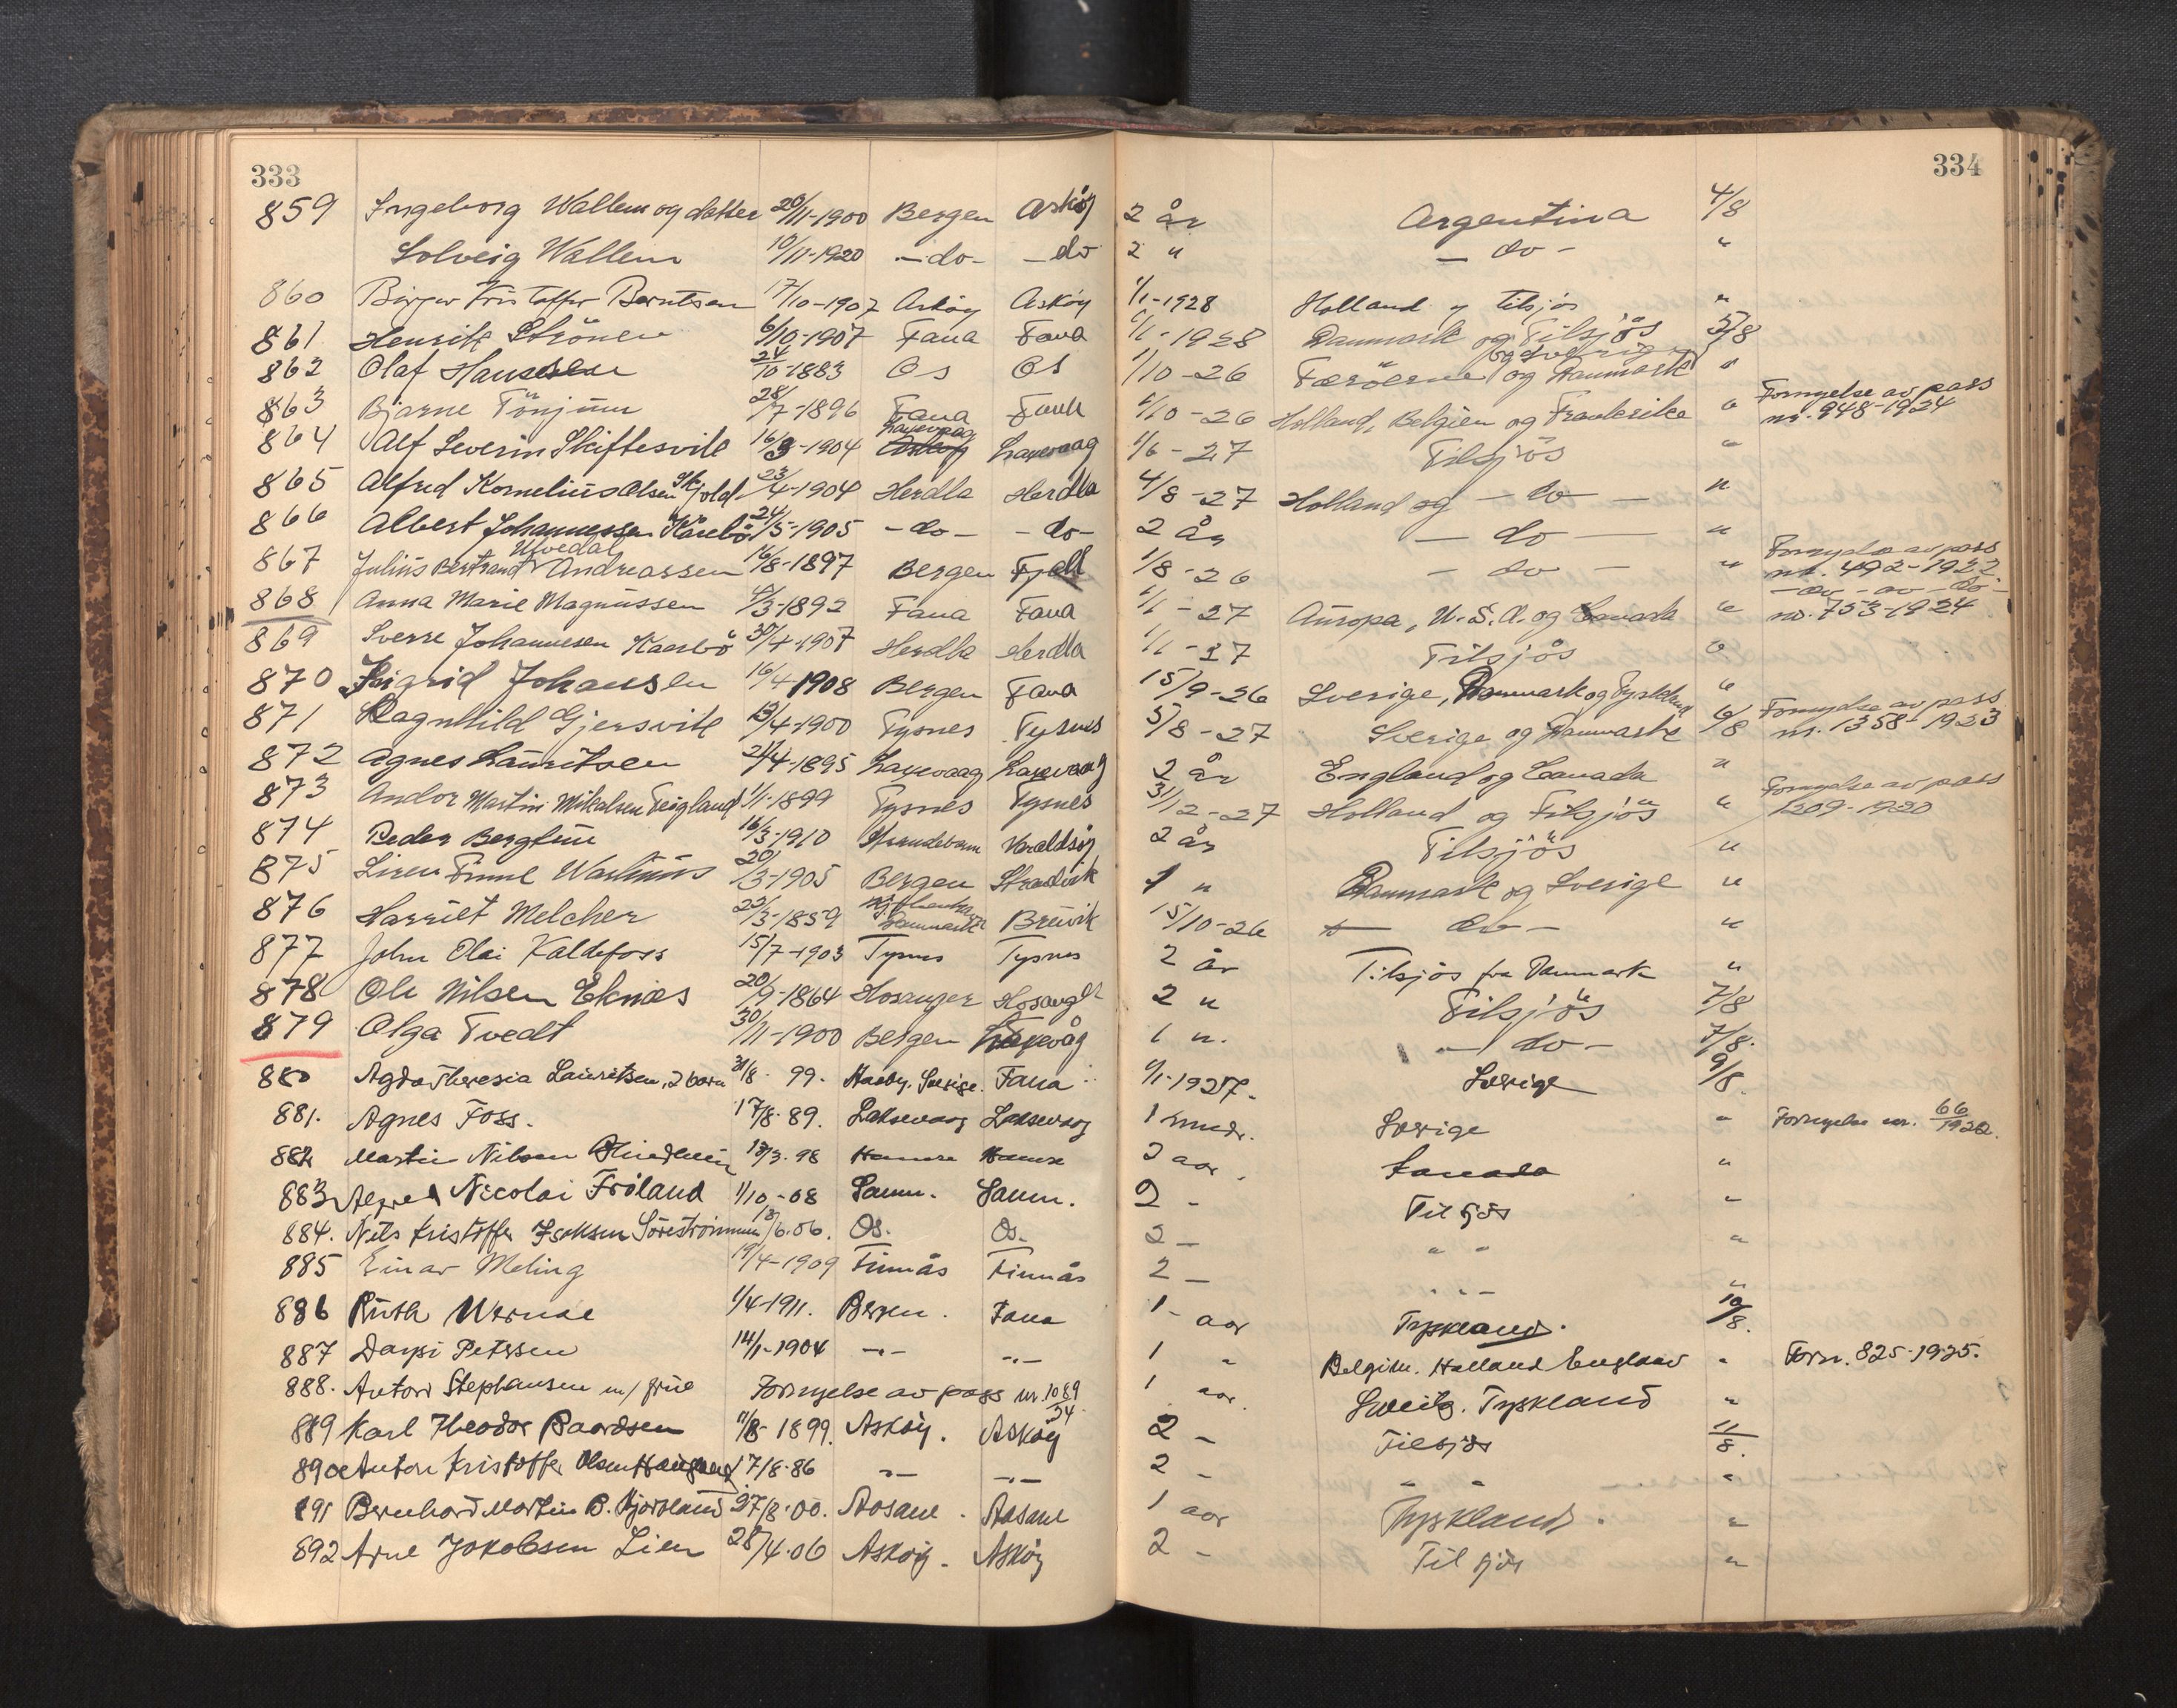 333
334
859 Ingeborg Wallem og datter 20/11-1900 Bergen Askøy 2 år Argentina 4/8
Solveig Wallem 10/11-1920 -do- -do 2 " -do- "
860 Birger Kristoffer Berntsen 17/10-1907 Askøy Askøy 1/1-1928 Holland og tilsjös "
861 Henrik Strönen 6/10-1907 Fana Fana 1/1-1928 Danmark og Tilsjös 5/8
og Sverige
862 Olaf Hanssen 24/10-1883 Os Os 1/10-26 Færöerne og Danmark "
863 Bjarne Tönjum 28/7-1896 Fana Fana 1/10-26 Holland, Belgien og Frankrike " Fornyelse av pass nr. 948-1924
864 Alf Severin Skiftesvik 16/3-1904 Laxevaag Laxevaag 1/6-27 Tilsjös "
865 Alfred Kornelius Olsen Skjold 23/4-1904 Herdla Herdla 4/8-27 Holland og -do- "
866 Albert Johannessen Kårbö 24/5-1905 -do- -do- 2 år -do- "
867 Julius Bertrand Andreassen 16/8-1897 Bergen Fjell 1/8-26 -do- " Fornyelse av pass nr. 492-1922
868 Anna Marie Magnussen 4/3-1892 Fana Fana 1/1-27 Auropa, U.S.A. og Canada " -do- av -do- no. 753-1924
869 Sverre Johannesen Kaarbö 30/4-1907 Herdla Herdla 1/1-27 Tilsjös "
870 Sigrid Johansen 16/4 1908 Bergen Fana 15/9-26 Sverige, Danmark og Tyskland "
871 Ragnhild Gjersvik 13/4-1900 Tysnes Tysnes 5/8-27 Sverige og Danmark 6/8 Fornyelse av pass nr. 1358-1923
872 Agnes Lauritsen 21/4-1895 Laxevaag Laxevaag 2 år England og Canada "
873 Andor Martin Mikalsen Teigland 1/1-1899 Tysnes Tysnes 31/12-27 Holland og Tilsjös " Fornyelse av pass 1209-1920
874 Peder Berglun 16/3-1910 Strandebarm Varaldsöy 2 år Tilsjös "
875 Siren Finne Wallnus 20/3-1905 Bergen Strandvik 1 " Danmark og Sverige "
876 Harriet Melcher 22/3-1859 Danmark Bruvik 15/10-26 -do- "
877 John Olai Kaldefoss 15/7-1903 Tysnes Tysnes 2 år Tilsjös fra Danmark "
878 Ole Nilsen Eknæs 20/9-1864 Hosanger Hosanger 2 " Tilsjös 7/8
879 Olga Tvedt 30/11-1900 Bergen Laxevåg 1 ". -do- 7/8.
880 Agda Theresia Lauritsen, 2 barn 31/8. 99. Sverige. Fana 1/1-1927. Sverige 9/8.
881. Agnes Foss. 17/8. 89. Laksevaag Laksevaag 1 mndr. Sverige " Fornyelse nr. 66/1922.
882 Martin Nilsen 13/3. 98 Hamre Hamre 2 aar. Canada "
883 Alfred Nicolai Fröland 1/10-08 Samn. Samn. 2 - Til sjös "
884. Nils Kristoffer Isaksen Söreströnmen 13/6.06. Os. Os. 2 - " " "
885 Einar Meling 19/4-1909 Finnås Finnås 2 - " " - "
886 Ruth Wernæ 1/4-1911. Bergen. Fana 1 - aar Tyskland. 10/8.
887 Daysi Petersen 14/1-1904 -"- -"- 1 " Belgien. Holland England " Forn. 825-1925.
888. Antoni Stephansen m/ frue Fornyelse av pass nr. 1089/24. 1 aar. Sveits. Tyskland "
889 Karl Theodor Baardsen 11/8-1899. Asköy. Asköy 2 - Tilsjös 11/8.
890 Anton Kristoffer Olsen Haugland 17/8-86 -"- -"- 2 - " " "
891 Bernhard Martin B. Hjortland 27/8.00. Aasane. Aasane 1 aar Tyskland. "
892 Arne Jakobsen Lien 28/4.06 Asköy. Asköy 2 - Til sjös "